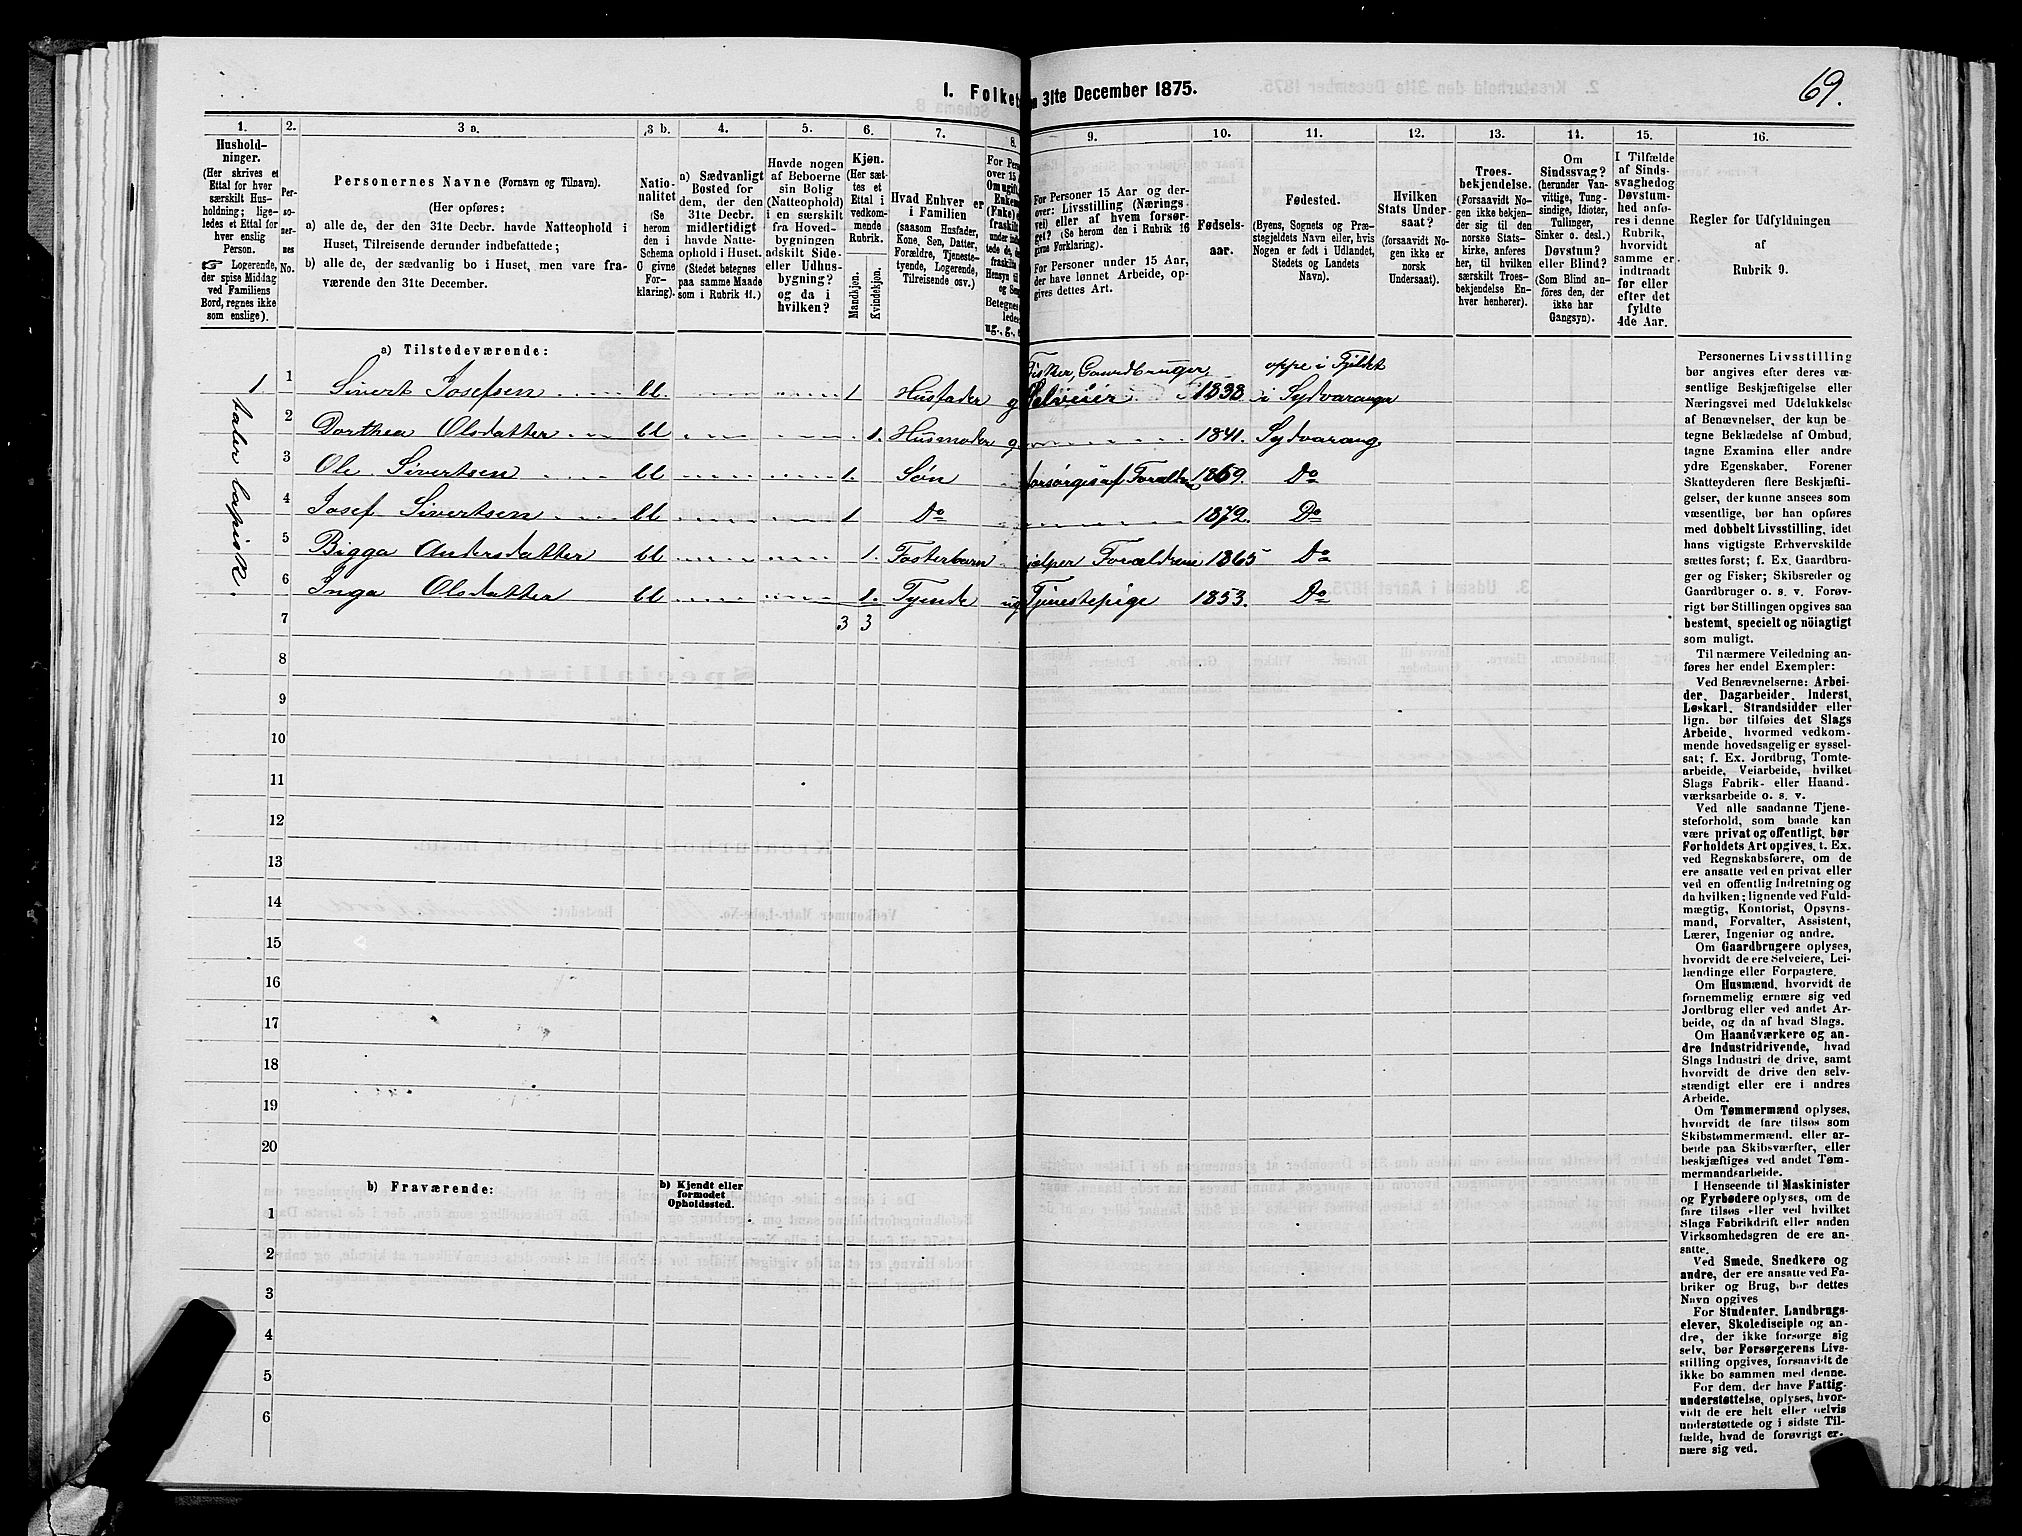 69.
I. Folket
n 31te December 1875.
1. 2. 3 a. 3 b. 4. 5. 6. 7. 8. 9. 10. 11. 12. 13. 14. 15. 16.
Hushold-
ninger.
(Her skrives et
Ettal for hver
særskilt Hus-
holdning; lige-
ledes et Ettal for
hver enslig
Person.
☞ Logerende,
der spise Middag
ved Familiens
Bord, regnes ikke
som enslige).
Per-
so-
ner-
nes
No.
Personernes Navne (Fornavn og Tilnavn).
(Her opføres:
a) alle de, der den 31te Decbr. havde Natteophold i
Huset, Tilreisende derunder indbefattede;
b) alle de, der sædvanlig bo i Huset, men vare fra-
værende den 31te December.
Natio-
nalitet
(Se
herom
den i
Schema
G givne
For-
klaring).
a) Sædvanligt
Bosted for
dem, der den
31te Decbr.
midlertidigt
havde Natte-
ophold i Huset.
(Stedet betegnes
paa samme Maade
som i Rubrik 11.)
Havde nogen
af Beboerne
sin Bolig
(Natteophold)
i en særskilt
fra Hoved-
bygningen
adskilt Side-
eller Udhus-
bygning?
og da i
hvilken?
Kjøn.
(Her sæt-
tes et
Ettal i
vedkom-
mende
Rubrik.
Mandkjøn.
Kvindekjøn.
Hvad Enhver er
i Familien
(saasom Husfader,
Kone, Søn, Datter,
Forældre, Tjeneste-
tyende, Logerende,
Tilreisende osv.)
For Pers
over 15 A
Om ugift,
Enkema
(Enke) e
fraskilt
under indb
tede de, de
fraskilte
Hensyn til
og Sen
Betegnes
ledes
ug., g., e
For Personer 15 Aar og der-
over: Livsstilling (Nærings-
vei) eller af hvem forsør-
get? (Se herom den i Rubrik 16
givne Forklaring).
For Personer under 15 Aar,
der have lønnet Arbeide, op-
gives dettes Art.
Fødsels-
aar.
Fødested.
(Byens, Sognets og Præ-
stegjeldets Navn eller, hvis
Nogen er født i Udlandet,
Stedets og Landets
Navn).
Hvilken
Stats Under-
saat?
(forsaavidt No-
gen ikke er
norsk
Undersaat).
Troes-
bekjendelse.
(Forsaavidt No-
gen ikke bekjen-
der sig til den
norske Stats-
kirke, anføres
her, til hvilken
særskilt Troes-
bekjendelse En-
hver henhører).
Om
Sindssvag?
(herunder Van-
vittige, Tung-
sindige, Idioter,
Tullinger,
Sinker o. desl.)
Døvstum?
eller Blind?
(Som Blind an-
føres den, der
ikke har
Gangsyn).
I Tilfælde
af Sinds-
svaghed og
Døvstum-
hed anfø-
res i denne
Rubrik,
hvorvidt
samme er
indtraadt
før eller
efter det
fyldte
4de Aar.
Regler for Udfyldningen
af
Rubrik 9.
a) Tilstedeværende:
Fisker, Gaardbruger, oppe i Fjeldet
1. 1 Sivert Josefsen bl. 1 Husfader g Selveier 1838. i Sydvaranger
2 Dorthea Olsdatter bl 1. Husmoder g. 1841. Sydvarang.
3 Ole Sivertsen bl 1. Søn forsørges af Forældre 1869. Do
4 Josef Sivertsen bl 1 Do 1872. Do
5 Bigga Andersdatter bl 1. Fosterbarn hjælper Forældrene 1865 Do
6 Inga Olsdatter bl 1. Tyende ug Tjenestepige 1853. Do
taler lapisk.
7 3 3
8
9
10
11
12
13
14
15
16
17
18
19
20
b) Fraværende:
b) Kjendt eller
formodet
Opholdssted.
1
2
3
4
5
6
Personernes Livsstilling
bør angives efter deres væ-
sentlige Beskjæftigelse eller
Næringsvei med Udelukkelse
af Benævnelser, der kun be-
tegne Beklædelse af Ombud,
tagne Examina eller andre
ydre Egenskaber. Forener
Skatteyderen flere Beskjæfti-
gelser, der kunne ansees som
væsentlige, bør han opføres
med dobbelt Livsstilling, idet
hans vigtigste Erhvervskilde
sættes først; f. Ex. Gaardbru-
ger og Fisker; Skibsreder og
Gaardbruger o. s. v. Forøv-
rigt bør Stillingen opgives saa
bestemt, specielt og nøiagtigt
som muligt.
Til nærmere Veiledning an-
føres her endel Exempler:
Ved Benævnelserne: Arbei-
der, Dagarbeider, Inderst,
Løskarl, Strandsidder eller
lign. bør tilføies det Slags
Arbeide, hvormed vedkom-
mende hovedsagelig er syssel-
sat; f. Ex. Jordbrug, Tomte-
arbeide, Veiarbeide, hvilket
Slags Fabrik- eller Haand-
værksarbeide o. s. v.
Ved alle saadanne Tjene-
steforhold, som baade kan
være privat og offentligt, bør
Forholdets Art opgives, t. Ex.
ved Regnskabsførere, om de
ere ansatte ved en privat eller
ved en offentlig Indretning og
da hvilken; lignende ved Fuld-
mægtig, Kontorist, Opsyns-
mand, Forvalter, Assistent,
Lærer, Ingeniør og andre.
Om Gaardbrugere oplyses,
hvorvidt de ere Selveiere, Lei-
lændinge eller Forpagtere.
Om Husmænd, hvorvidt de
fornemmelig ernære sig ved
Jordbrug eller ved andet Ar-
beide, og da af hvad Slags.
Om Haandværkere og an-
dre Industridrivende, hvad
Slags Industri de drive, samt
hvorvidt de drive den selv-
stændigt eller ere i andres
Arbeide.
Om Tømmermænd oplyses,
hvorvidt de fare tilsøs som
Skibstømmermænd, eller ar-
beide paa Skibsværfter, eller
beskjæftiges ved andet Tøm-
mermandsarbeide.
I Henseende til Maskinister
og Fyrbødere oplyses, om de
fare tilsøs eller ved hvilket
Slags Fabrikdrift eller anden
Virksomhedsgren de ere an-
satte.
Ved Smede, Snedkere og
andre, der ere ansatte ved Fa-
briker og Brug, bør dettes
Navn opgives
For Studenter, Landbrugs-
elever, Skoledisciple og an-
dre, der ikke forsørge sig
selv, bør Forsørgerens Livs-
stilling opgives, forsaavidt de
ikke bo sammen med denne.
For dem, der have Fattig-
understøttelse, oplyses, hvor-
vidt de ere helt eller delvis
understøttede og i sidste Til-
fælde, hvad de forøvrigt er-
nære sig ved.